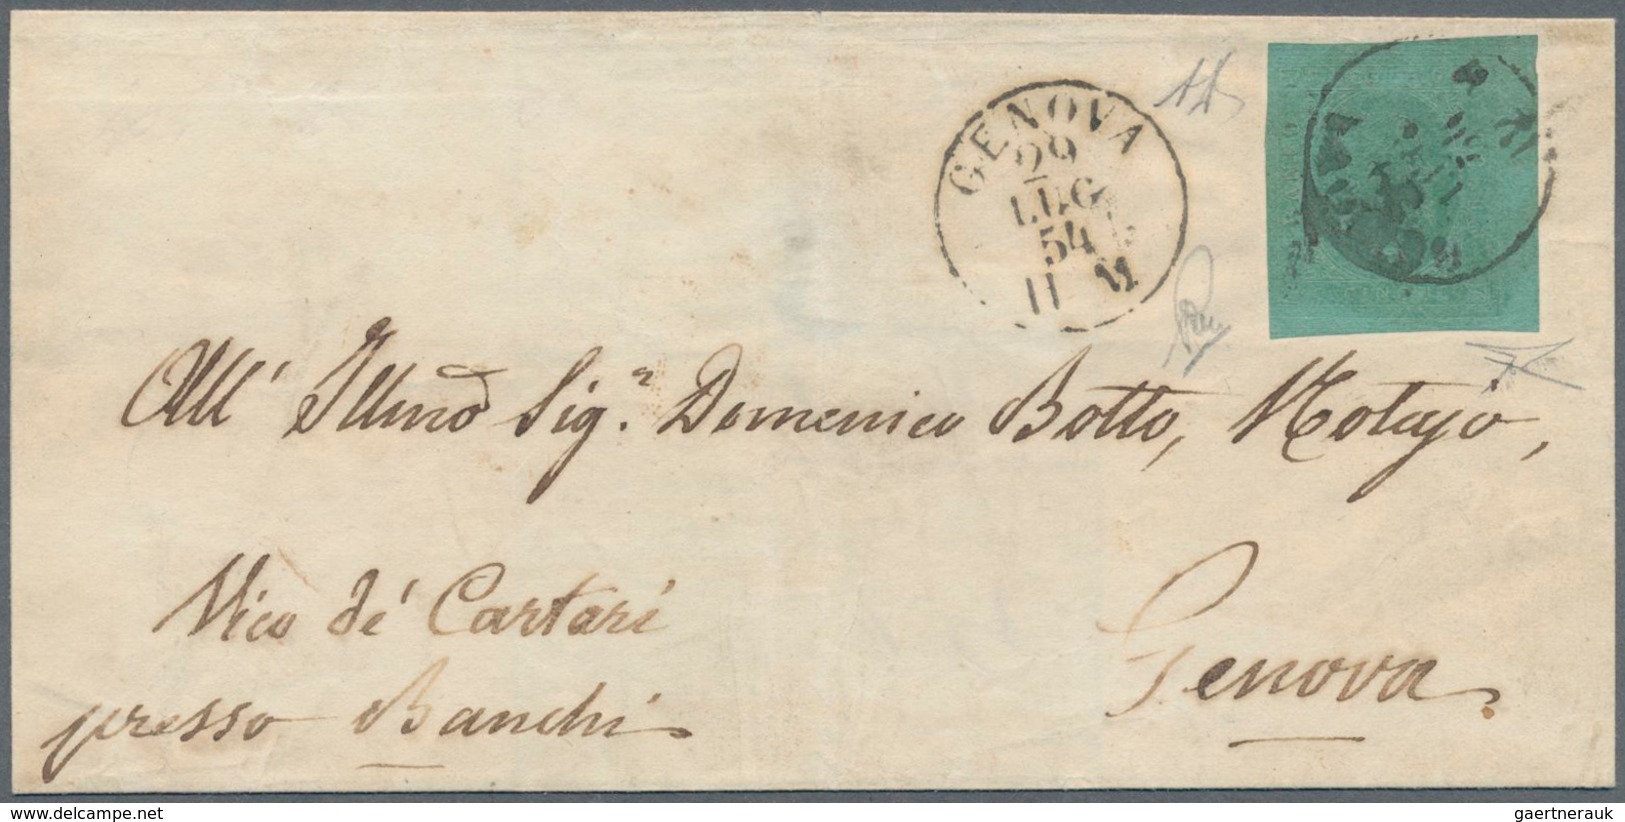 GENOVA
29
LUG
54
11 M
All' Illmo Sig.r Domenico Botto, Notajo,
Vico dé Cartari
presso Banchi
Genova
delcampe.net
gaertnerauk